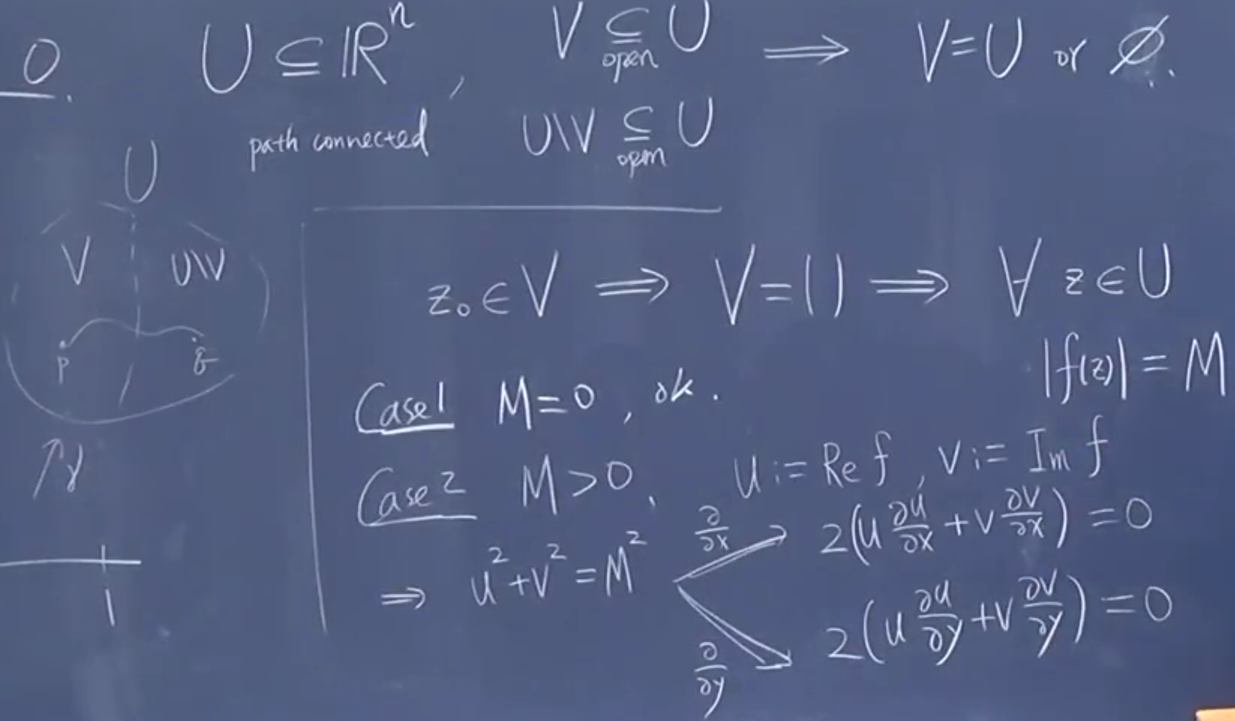 0. U ⊆ ℝⁿ, V ⊆ U ⟹ V=U or ∅.
open
path connected U\V ⊆ U
open
U
V U\V
p q
↑γ
1
z₀ ∈ V ⟹ V=U ⟹ ∀ z∈U
|f(z)| = M
Case1 M=0, ok.
Case2 M>0, u := Re f, v := Im f
⟹ u²+v²=M²
∂/∂x 2(u ∂u/∂x + v ∂v/∂x) = 0
∂/∂y 2(u ∂u/∂y + v ∂v/∂y) = 0